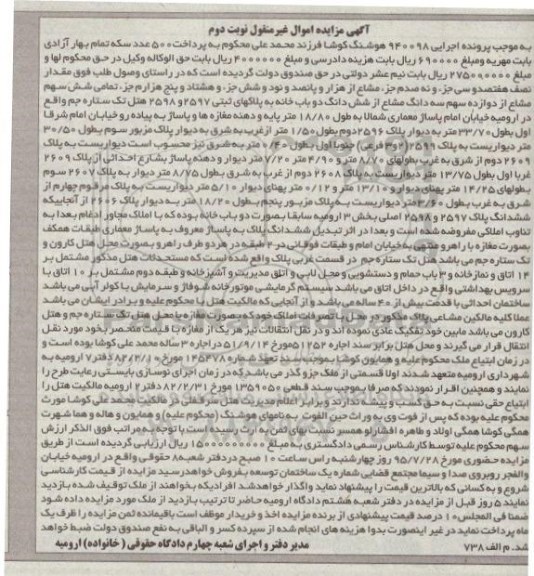 آگهی مزایده اموال غیرمنقول نوبت دوم
به موجب پرونده اجرایی ۹۴۰۰۹۸ هوشنگ کوشا فرزند محمد علی محکوم به پرداخت ۵۰۰ عدد سکه تمام بهار آزادی
بابت مهریه ومبلغ ۶۹۰۰۰۰ ریال بابت هزینه دادرسی و مبلغ ۴۰۰۰۰۰۰ ریال بابت حق الوکاله وکیل در حق محکوم لها و
مبلغ ۲۷۵۰۹۰۰۰۰ ریال بابت نیم عشر دولتی در حق صندوق دولت گردیده است که در راستای وصول طلب فوق مقدار
نصف هفتصدو سی جزء و نه صدم جزء مشاع از هزار و پانصد و نود و شش جزء و هشتاد و پنج هزارم جزء تمامی شش سهم
مشاع از دوازده سهم سه دانگ مشاع از شش دانگ دو باب خانه به پلاکهای ثبتی ۲۵۹۷ و ۲۵۹۸ هتل تک ستاره جم واقع
در ارومیه خیابان امام پاساژ معماری شمالا به طول ۱۸/۸۰ متر پایه و دهنه مغازه ها و پاساژ به پیاده رو خیابان امام شرقا
اول بطول ۳۳/۷۰ متر به دیوار پلاک ۲۵۹۶ دوم بطول ۱/۵۰ متر ازغرب به شرق به دیوار پلاک مزبور سوم بطول ۳۰/۵۰
متر دیواریست به پلاک ۲۵۹۱ و ۳ فرعی) جنوبا اول بطول ۰/۴۰ متر به شرق نیز محسوب است دیواریست به پلاک
۲۶۰۹ دوم از شرق به غرب بطولهای ۸/۷۰ متر و ۴/۹۰ متر ۷/۲۰ متر دیوار و دهنه پاساژ بشارع احداثی از پلاک ۲۶۰۹
غربا اول بطول ۱۳/۷۵ متر دیواریست به پلاک ۲۶۰۸ دوم از غرب به شرق بطول ۸/۷۵ متر دیوار به پلاک ۲۶۰۷ سوم
بطولهای ۱۴/۲۵ متر پهنای دیوار و ۱۳/۱۰ متر و ۰/۱۲ متر پهنای دیوار ۵/۱۰ متر دیواریست به پلاک مرقوم چهارم از
شرق به غرب بطول ۳/۶۰ متر دیواریست به پلاک مزبور پنجم بطول ۱۸/۲۰ متر به دیوار پلاک ۲۶۰۶ از آنجاییکه
ششدانگ پلاک ۲۵۹۷ و ۲۵۹۸ اصلی بخش ۳ ارومیه سابقا بصورت دو باب خانه بوده که با املاک مجاور ادغام بعدا به
تناوب املاکی مفروضه شده است و بعدا در اثر تبدیل ششدانگ پلاک به پاساژ معروف به پاساژ معماری طبقات همکف
بصورت مغازه با راهرو منتهی به خیابان امام و طبقات فوقانی در ۲ طبقه در هردو طرف راهرو بصورت محل هتل کارون و
تک ستاره جم می باشد هتل تک ستاره جم در قسمت غربی پلاک واقع شده است که مستحدثات هتل مذکور مشتمل بر
۱۴ اتاق و نمازخانه و ۳ باب حمام و دستشویی و محل لابی و اتاق مدیریت و آشپزخانه و طبقه دوم مشتمل بر ۱۰ اتاق با
سرویس بهداشتی واقع در داخل اتاق می باشد سیستم گرمایشی موتورخانه شوفاژ و سرمایش با کولر آبی می باشد
ساختمان احداثی با قدمت بیش از ۴۰ ساله می باشد و از آنجایی که مالکیت هتل با محکوم علیه و برادر ایشان می باشد
عملا کلیه مالکین مشاعی پلاک مذکور در محل با تصرفات املاک خود که بصورت مغازه یا محل هتل تک ستاره جم و هتل
کارون می باشد مابین خود تفکیک عادی نموده اند و در نقل انتقالات نیز هر یک از مغازه با قیمت منحصر بخود مورد نقل
انتقال قرار می گیرند و محل هتل برابر سند اجاره ۵۱۲۵۲ مورخ ۵۱/۹/۱۴ در اجاره ۳ ساله محمد علی کوشا بوده است و
در زمان ابتیاع ملک محکوم علیه و همایون کوشا بموجب سند تعهد شماره ۱۴۵۴۷۸ مورخ ۸۲/۲/۱۰ دفتر ۷ ارومیه به
شهرداری ارومیه متعهد شدند اولا قسمتی از ملک جزو گذر می باشد که در زمان اجرای نوسازی بایستی رعایت طرح را
نمایند و همچنین اقرار نمودند که صرفا بموجب سند قطعی ۱۳۵۹۰۵۰ مورخ ۸۲/۲/۳۱ دفتر ۲ ارومیه مالکیت هتل را
ابتیاع حقی نسبت به حق کسب و پیشه ندارند و برابر اعلام مدیریت هتل سرقفلی در مالکیت محمد علی کوشا مورث
محکوم علیه بوده که پس از فوت وی به وراث حین الفوت به نامهای هوشنگ (محکوم علیه) و همایون و هاله و هما شهرت
همگی کوشا همگی اولاد و طاهره افشارلو همسر نسبت بهای ثمن به ارث رسیده است با توجه به مراتب فوق الذکر ارزش
سهم محکوم علیه توسط کارشناس رسمی دادگستری به مبلغ ۱۵۰۰۰۰۰۰۰۰۰ ریال ارزیابی گردیده است از طریق
مزایده حضوری مورخ ۹۵/۷/۲۸ روز چهارشنبه راس ساعت ۱۰ صبح دردفتر شعبه ۸ حقوقی واقع در ارومیه خیابان
والفجر روبروی صدا و سیما مجتمع قضایی شماره یک ساختمان توسعه بفروش خواهدرسید مزایده از قیمت کارشناسی
شروع و به کسانی که بالاترین قیمت را پیشنهاد نماید واگذار خواهدشد افرادیکه بخواهند از ملک توقیف شده بازدید
نمایند ۵ روز قبل از مزایده در دفتر شعبه هشتم دادگاه ارومیه حاضر تا ترتیب بازدید از ملک مورد مزایده داده شود
ضمنا فی المجلس ۱۰ درصد قیمت پیشنهادی از برنده مزایده اخذ و خریدار موظف است باقیمانده ثمن مزایده را ظرف یک
ماه پرداخت نماید در غیر اینصورت بدوا هزینه های انجام شده از سپرده کسر و الباقی به نفع صندوق دولت ضبط خواهد
شد. م الف ۷۳۸ مدیر دفتر و اجرای شعبه چهارم دادگاه حقوقی ( خانواده) ارومیه